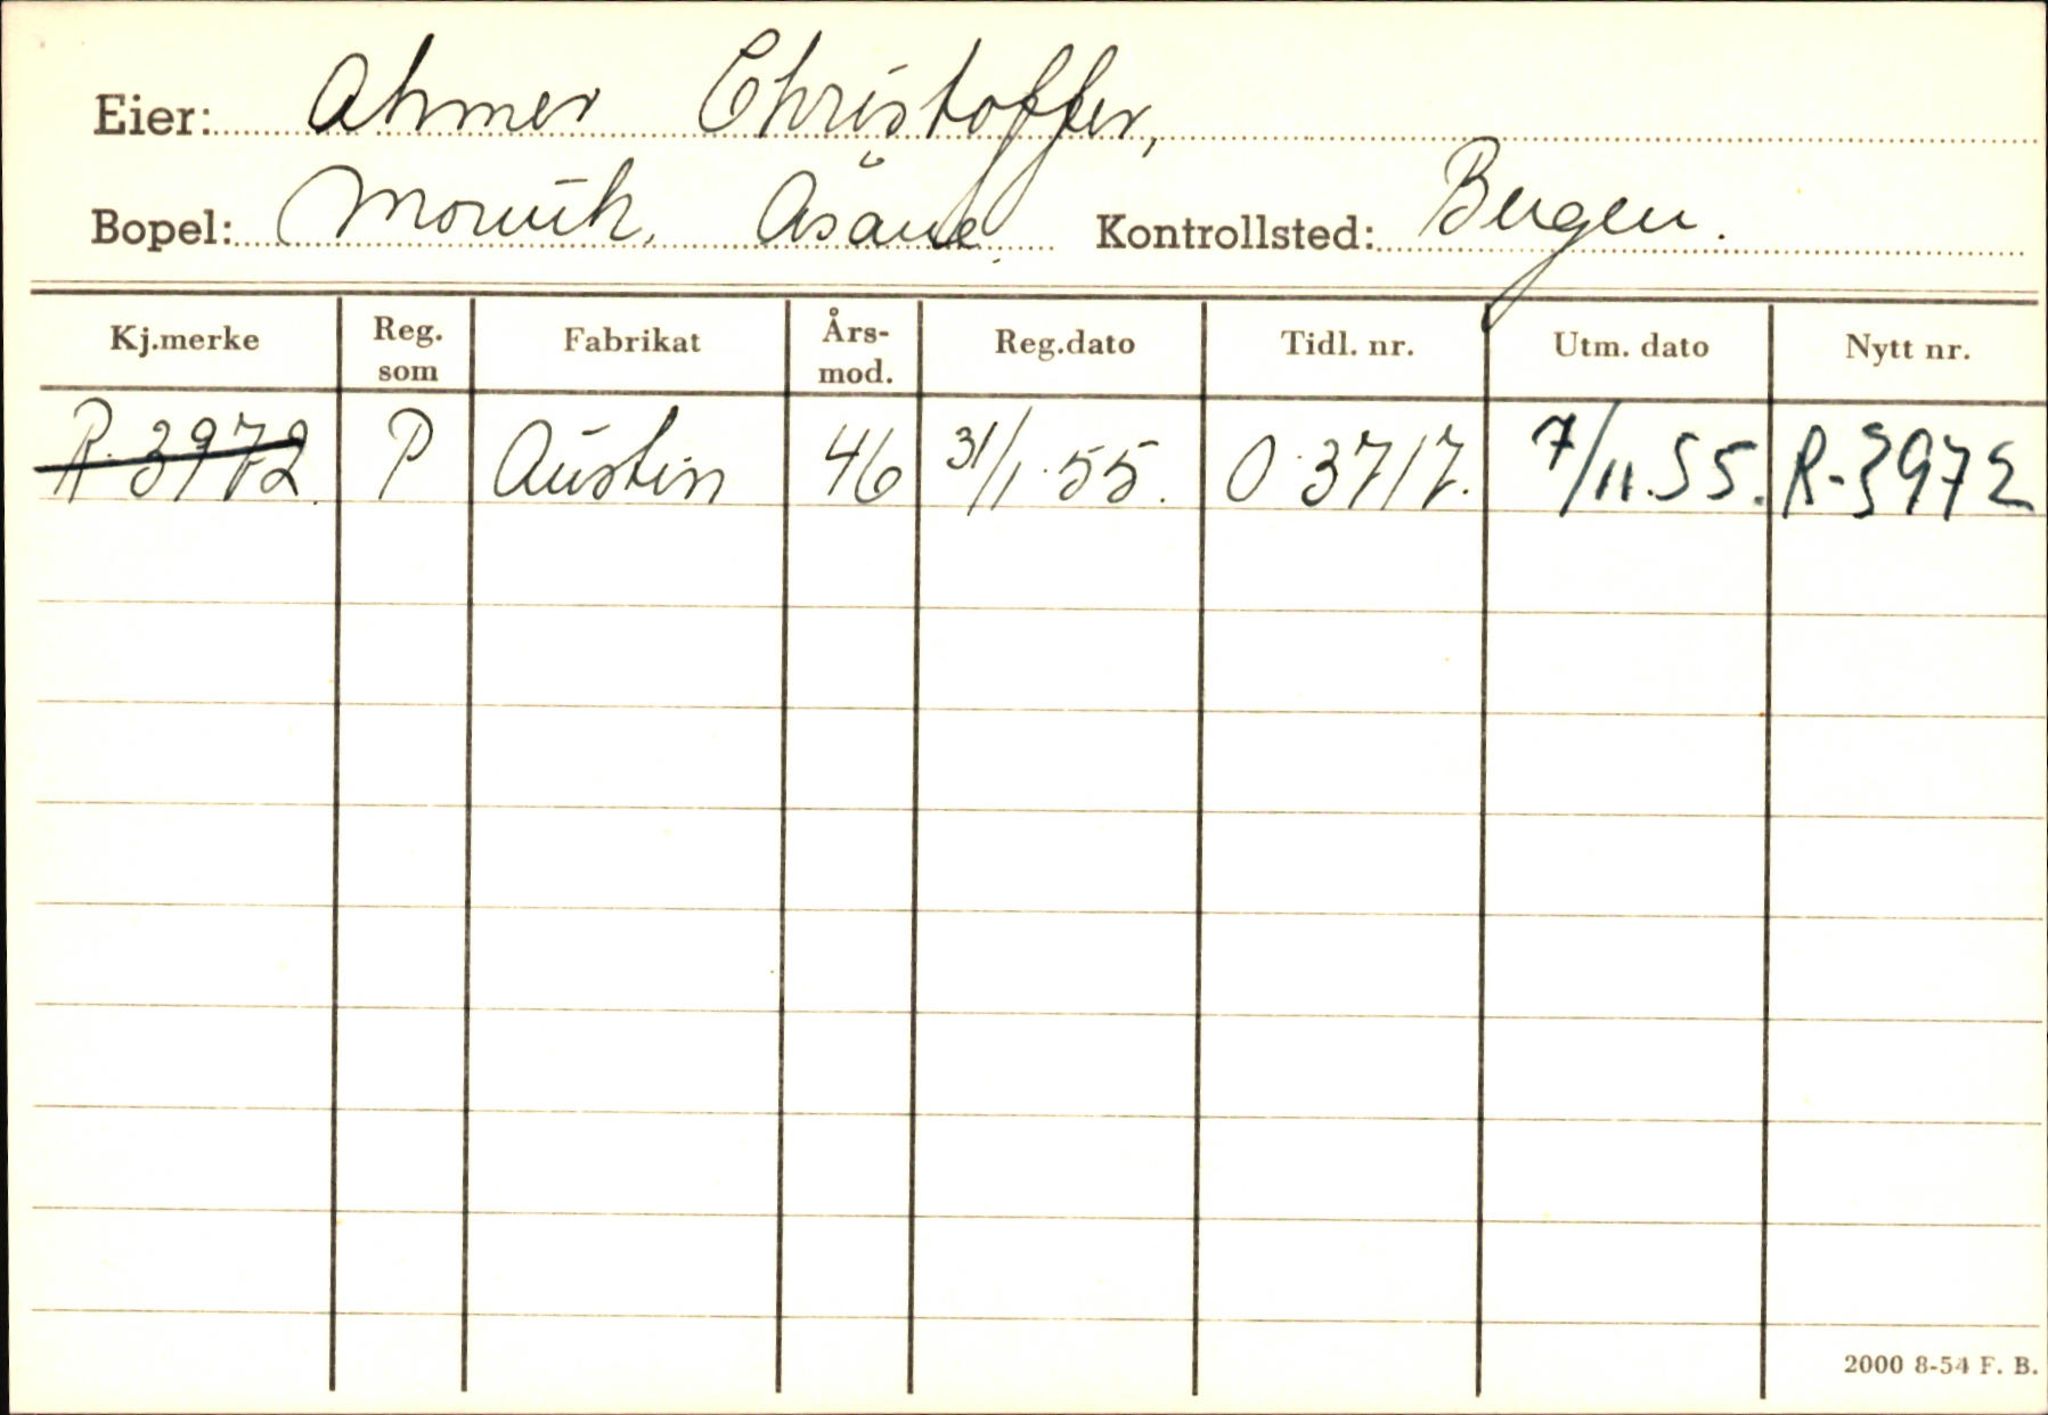 Eier: Ahmer Christoffer,
Bopel: Morvik, Åsane. Kontrollsted: Bergen.
Kj.merke Reg. som Fabrikat Års-mod. Reg.dato Tidl. nr. Utm. dato Nytt nr.
R-3972. P Austin 46 31/1-55. O-3717. 7/11.55. R-3972
2000 8-54 F. B.